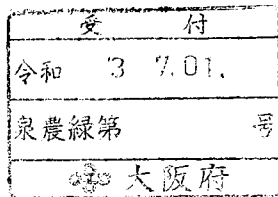 受付
令和 3 7.01.
泉農緑第 号
大阪府